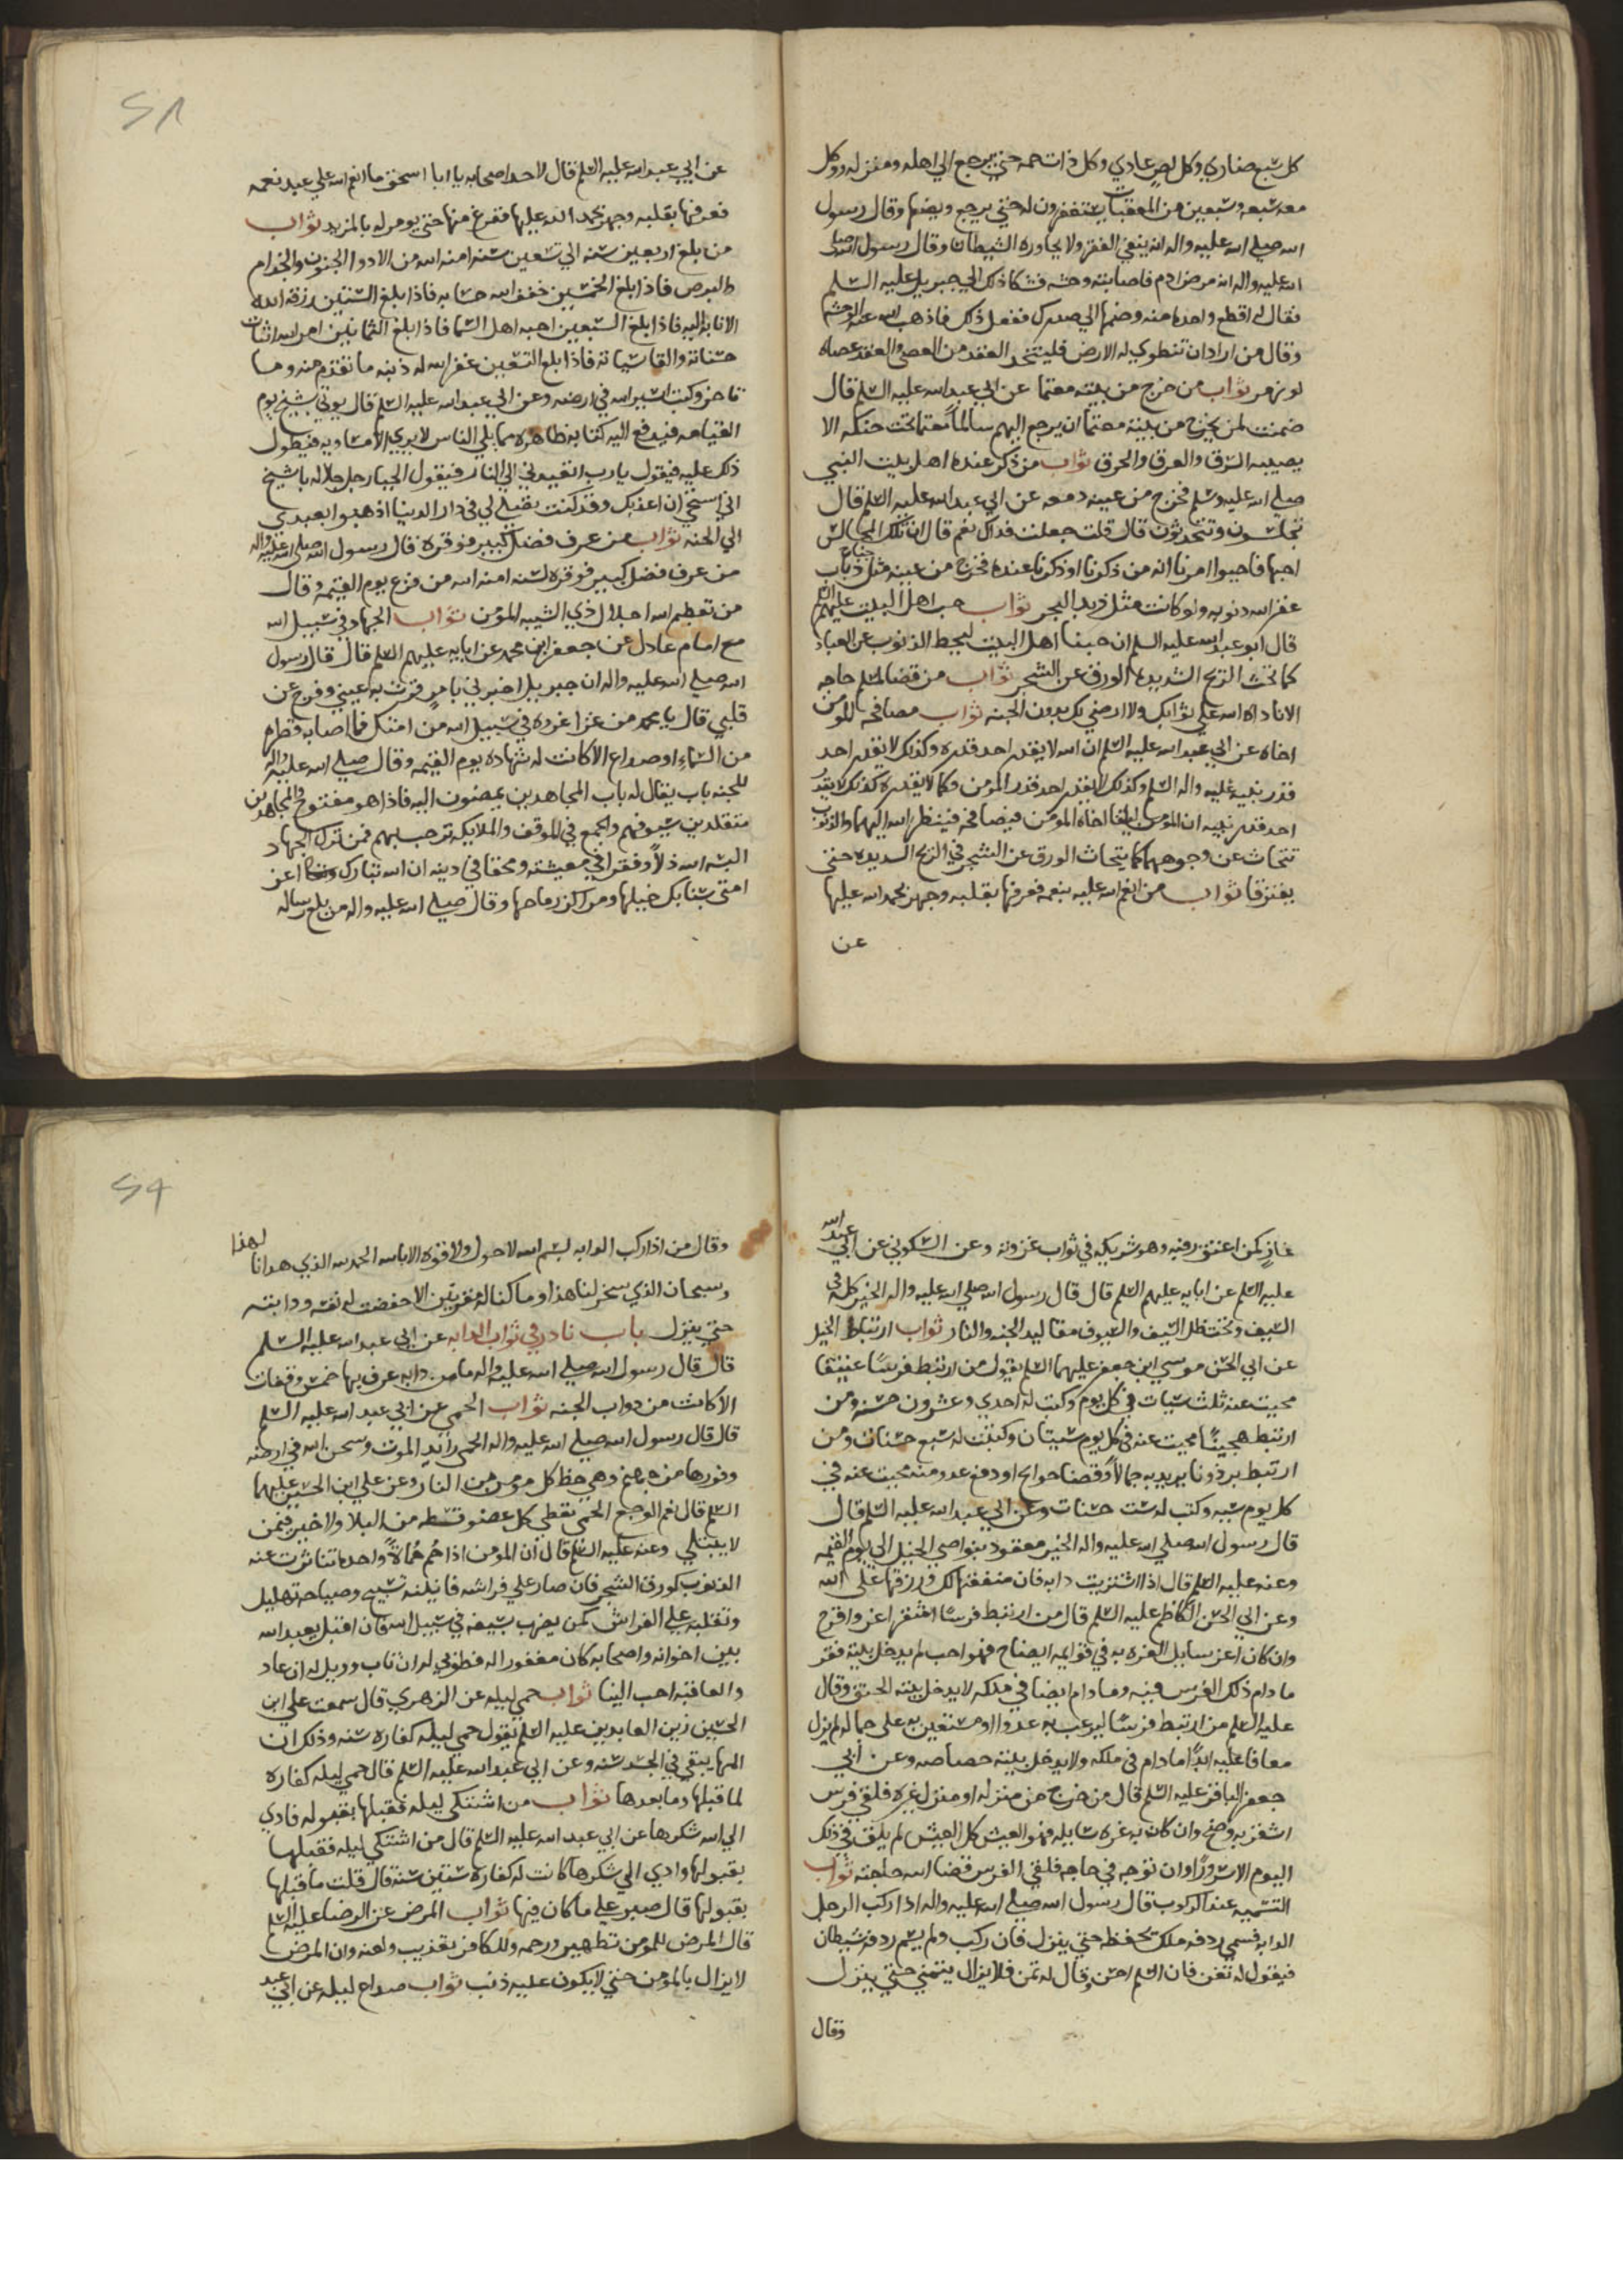 كل سبع ضاري وكل لص عادي وكل ذات حمه حتي يرجع الي اهله ومنزله ووكل
معه سبعه وسبعين من المعقبات يستغفرون له حتي يرجع ويضعها وقال رسول
الله صلي الله عليه واله انه ينفي الفقر ولا يجاوره الشيطان وقال رسول الله صلي
الله عليه واله انه مرض ادم فاصابته وحشه فشكا ذلك الي جبريل عليه السلم
فقال له اقطع واحده منه وضمها الي صدرك ففعل ذلك فاذهب الله عنه الوحشه
وقال من اراد ان تنطوي له الارض فليتخذ النقد من العصي والنقد عصاه
لوز مر ثواب من خرج من بيته معتما عن ابي عبد الله عليه السلم قال
ضمنت لمن يخرج من بيته معتما ان يرجع اليهم سالما معتما تحت حنكه الا
يصيبه السرق والغرق والحرق ثواب من ذكر عنده اهل بيت النبي
صلي الله عليه وسلم فخرج من عينه دمعه عن ابي عبد الله عليه السلم قال
تجلسون وتتحدثون قال قلت جعلت فداك نعم قال ان تلك المجالس
احبها فاحيوا امرنا انه من ذكرنا او ذكرنا عنده فخرج من عينه مثل جناح ذباب
غفر الله ذنوبه ولو كانت مثل زبد البحر ثواب حب اهل البيت عليهم السلم
قال ابو عبد الله عليه السلم ان حبنا اهل البيت ليحط الذنوب عن العباد
كما تحت الريح الشديده الورق عن الشجر ثواب من قضا لمسلم حاجه
الا ناداه الله علي ثوابك ولا ارضي لك بدون الجنه ثواب مصافحه المومن
اخاه عن ابي عبد الله عليه السلم ان الله لا يقدر احد قدره وكذلك لا يقدر احد
قدر نبيه عليه واله السلم وكذلك لا يقدر احد قدر المومن وكما لا يقدره كذلك لا يقدر
احد قدر نبيه ان المومن ليلقا اخاه المومن فيصافحه فينظر الله اليهما والذنوب
تتحات عن وجوههما كما يتحاث الورق عن الشجر في الريح الشديده حتي
يفترقا ثواب من انعم الله عليه بنعمه فعرفها بقلبه وجهر بحمد الله عليها
عن
٢٨
عن ابي عبد الله عليه السلم قال لاحد اصحابه يا ابا اسحق ما انعم الله علي عبد نعمه
فعرفها بقلبه وجهر بحمد الله عليها ففرغ منها حتي يومر له بالمزيد ثواب
من بلغ اربعين سنه الي تسعين سنه امنه الله من الادوا الجنون والجذام
والبرص فاذا بلغ الخمسين خفف الله حسابه فاذا بلغ الستين رزقه الله
الانابه اليه فاذا بلغ السبعين احبه اهل السما فاذا بلغ الثمانين امر الله اثبات
حسناته والقا سياته فاذا بلغ التسعين غفر الله له ذنبه ما تقدم منه وما
تاخر وكتب اسير الله في ارضه وعن ابي عبد الله عليه السلم قال يوتي بشيخ يوم
القيامه فيدفع اليه كتابه ظاهره مما يلي الناس لا يري الا مساويه فيطول
ذلك عليه فيقول يارب اتعيدني الي النار فيقول الجبار جل جلاله يا شيخ
اني استحي ان اعذبك وقد كنت تصلي لي في دار الدنيا اذهبوا بعبدي
الي الجنه ثواب من عرف فضل كبير فوقره قال رسول الله صلي الله عليه واله
من عرف فضل كبير فوقره لسنه امنه الله من فزع يوم القيمه وقال
من تعظيم الله اجلال ذي الشيبه المومن ثواب الجهاد في سبيل الله
مع امام عادل عن جعفر ابن محمد عن ابايه عليهم السلم قال قال رسول
الله صلي الله عليه واله ان جبريل اخبرني بامر قرت به عيني وفرح عن
قلبي قال يا محمد من غزا غزوه في سبيل الله من امتك فما اصابه قطره
من السماء او صداع الا كانت له شهاده يوم القيمه وقال صلي الله عليه واله
للجنه باب يقال له باب المجاهدين يمضون اليه فاذا هو مفتوح والمجاهدين
متقلدين سيوفهم والجمع في الموقف والملايكه ترحب بهم فمن ترك الجهاد
البسه الله ذلا وفقرا في معيشته ومحقا في دينه ان الله تبارك وتعالي اعز
امتي بسنابك خيلها ومراكز رماحها وقال صلي الله عليه واله من بلغ رساله
غاز كمن اعتق رقبه وهو شريكه في ثواب غزوته وعن السكوني عن ابي عبد الله
عليه السلم عن ابايه عليهم السلم قال قال رسول الله صلي الله عليه واله الخير كله في
السيف وتحت ظل السيف والسيوف مقاليد الجنه والنار ثواب ارتباط الخيل
عن ابي الحسن موسي ابن جعفر عليهما السلم يقول من ارتبط فرسا عتيقا
محيت عنه ثلث سيات في كل يوم وكتب له احدي وعشرون حسنه ومن
ارتبط هجينا محيت عنه في كل يوم سيتان وكتبت له سبع حسنات ومن
ارتبط برذونا يريد به جمالا وقضا حوايج او دفع عدو منه محيت عنه في
كل يوم سيه وكتب له ست حسنات وعن ابي عبد الله عليه السلم قال
قال رسول الله صلي الله عليه واله الخير معقود بنواصي الخيل الي يوم القيمه
وعنه عليه السلم قال اذا اشتريت دابه فان منفعتها لك ورزقها علي الله
وعن ابي الحسن الكاظم عليه السلم قال من ارتبط فرسا اشقر اغر واقرح
وان كان اغر سايل الغره به في قوايمه ايضاح فهو احب لم يدخل بيته فقر
ما دام ذلك الفرس فيه وما دام ايضا في ملكه لا يدخل بيته الحنق وقال
عليه السلم من ارتبط فرسا ليرعب به عدوا او مستعين به علي جماله لم يزل
معافا عليه ابدا ما دام في ملكه ولا يدخل بيته خصاصه وعن ابي
جعفر الباقر عليه السلم قال من خرج من منزله او منزل غيره فلقي فرس
اشقر به وضح وان كان به غره سايله فهو العيش كل العيش لم يلق في ذلك
اليوم الا سرورا وان توجه في حاجه فلقي الفرس قضا الله حاجته ثواب
التسميه عند الركوب قال رسول الله صلي الله عليه واله اذا ركب الرجل
الدابه فسمي ردفه ملك يحفظه حتي ينزل فان ركب ولم يسم ردفه شيطان
فيقول له تغن فان السلم احسن وقال له تمن فلا يزال يتمني حتي ينزل
وقال
٢٩
وقال من اذا ركب الدابه بسم الله لا حول ولا قوه الا بالله الحمد لله الذي هدانا لهذا
وسبحان الذي سخر لنا هذا وما كنا له مقرنين الا حفضت له نفسه ودابته
حتي ينزل باب نادر في ثواب الدابه عن ابي عبد الله عليه السلم
قال قال رسول الله صلي الله عليه واله ما من دابه عرف بها خمس وقفات
الا كانت من دواب الجنه ثواب الحمي عن ابي عبد الله عليه السلم
قال قال رسول الله صلي الله عليه واله الحمي رايد الموت وسجن الله في ارضه
وفورها من جهنم وهي حظ كل مومن من النار وعن علي ابن الحسين عليهما
السلم قال نعم الوجع الحمي تعطي كل عضو قسطه من البلا ولا خير فيمن
لا يبتلي وعنه عليه السلم قال ان المومن اذا حم حماه واحده تناثرت عنه
الذنوب كورق الشجر فان صار علي فراشه فانينه تسبيح وصياحه تهليل
وتقلبه علي الفراش كمن يضرب بسيفه في سبيل الله فان اقبل يعبد الله
بين اخوانه واصحابه كان مغفورا له فطوبي له ان تاب وويل له ان عاد
والعافيه احب الينا ثواب حمي ليله عن الزهري قال سمعت علي ابن
الحسين زين العابدين عليه السلم يقول حمي ليله كفاره سنه وذلك ان
المها يبقي في الجسد سنه وعن ابي عبد الله عليه السلم قال حمي ليله كفاره
لما قبلها وما بعدها ثواب من اشتكي ليله فقبلها بقبوله فادي
الي الله شكرها عن ابي عبد الله عليه السلم قال من اشتكي ليله فقبلها
بقبولها وادي الي شكرها كانت له كفاره ستين سنه قال قلت ما قبلها
بقبولها قال صبر علي ما كان فيها ثواب المرض عن الرضا عليه السلم
قال المرض للمومن تطهير ورحمه وللكافر تعذيب ولعنه وان المرض
لا يزال بالمومن حتي لا يكون عليه ذنب ثواب صداع ليله عن ابي عبد